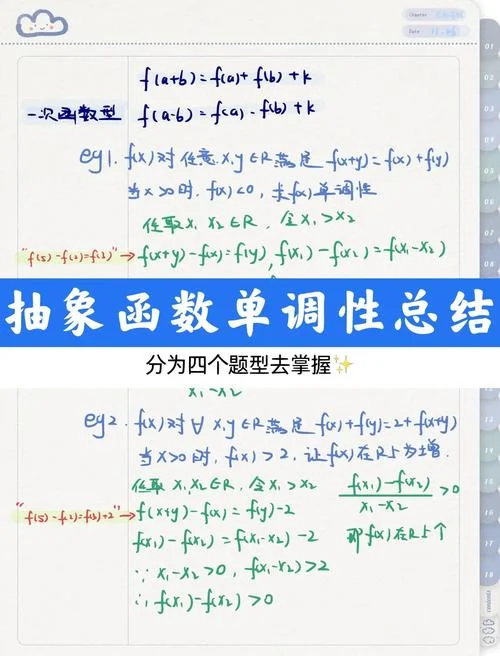 f(a+b)=f(a)+f(b)+k
一次函数型 f(a-b)=f(a)-f(b)+k
eg1. f(x)对任意x,y∈R满足f(x+y)=f(x)+f(y)
当x>0时,f(x)<0,求f(x)单调性
任取x₁,x₂∈R,令x₁>x₂
"f(5)-f(2)=f(3)"→ f(x+y)-f(x)=f(y), f(x₁)-f(x₂)=f(x₁-x₂)
抽象函数单调性总结
分为四个题型去掌握✨
x₁-x₂
eg2. f(x)对∀x,y∈R满足f(x)+f(y)=2+f(x+y)
当x>0时,f(x)>2,证f(x)在R上为增.
任取x₁,x₂∈R,令x₁>x₂
f(x₁)-f(x₂)/x₁-x₂ >0
"f(5)-f(2)=f(3)+2"→ f(x+y)-f(x)=f(y)-2
f(x₁)-f(x₂)=f(x₁-x₂)-2
即f(x)在R上个
∵x₁-x₂>0,f(x₁-x₂)>2
∴f(x₁)-f(x₂)>0
01
02
03
04
05
06
07
08
12
13
14
15
16
17
18
contents